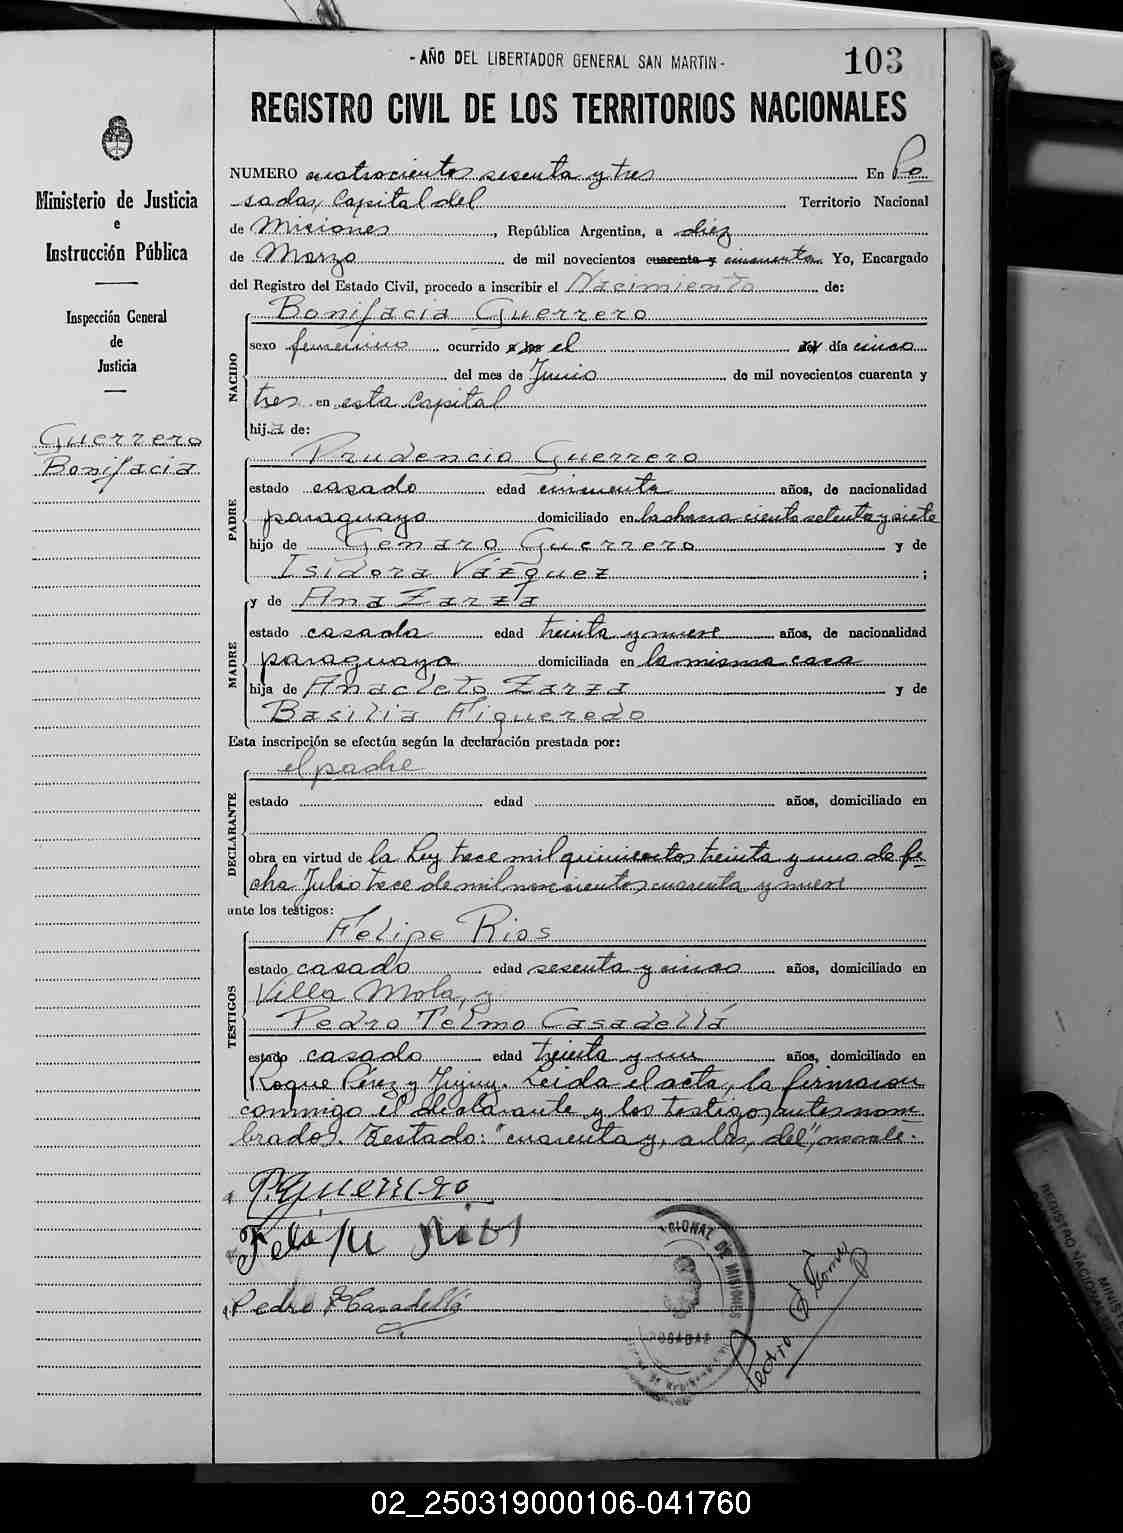 - AÑO DEL LIBERTADOR GENERAL SAN MARTIN -
103
REGISTRO CIVIL DE LOS TERRITORIOS NACIONALES
Ministerio de Justicia
e
Instrucción Pública
Inspección General
de
Justicia
Guerrero
Bonifacia
NUMERO cuatrocientos sesenta y tres En Po
sadas, Capital del Territorio Nacional
de Misiones, República Argentina, a diez
de Marzo de mil novecientos cuarenta y cincuenta. Yo, Encargado
del Registro del Estado Civil, procedo a inscribir el Nacimiento de:
NACIDO
Bonifacia Guerrero
sexo femenino ocurrido a las el del día cinco
del mes de Junio de mil novecientos cuarenta y
tres en esta capital
hija de:
PADRE
Prudencio Guerrero
estado casado edad cincuenta años, de nacionalidad
paraguaya domiciliado en la chacra ciento setenta y siete
hijo de Genaro Guerrero y de
Isidora Vázquez ;
y de Ana Zarza
MADRE
estado casada edad treinta y nueve años, de nacionalidad
paraguaya domiciliada en la misma casa
hija de Anacleto Zarza y de
Basilia Figueredo
Esta inscripción se efectúa según la declaración prestada por:
DECLARANTE
el padre
estado edad años, domiciliado en
obra en virtud de la Ley trece mil quinientos treinta y uno de fe
cha Julio trece de mil novecientos cuarenta y nueve
ante los testigos:
TESTIGOS
Felipe Rios
estado casado edad sesenta y cinco años, domiciliado en
Villa Mola, y
Pedro Telmo Casadellá
estado casado edad treinta y un años, domiciliado en
Roque Pérez y Jujuy. Leida el acta, la firmaron
conmigo el declarante y los testigos antes nom
brados. Testado: "cuarenta y, a las, del", no vale.
P. Guerrero
Felipe Rios
Pedro T. Casadellá
NACIONAL DE MISIONES
POSADAS
Pedro
REGISTRO NACIONAL
02_250319000106-041760